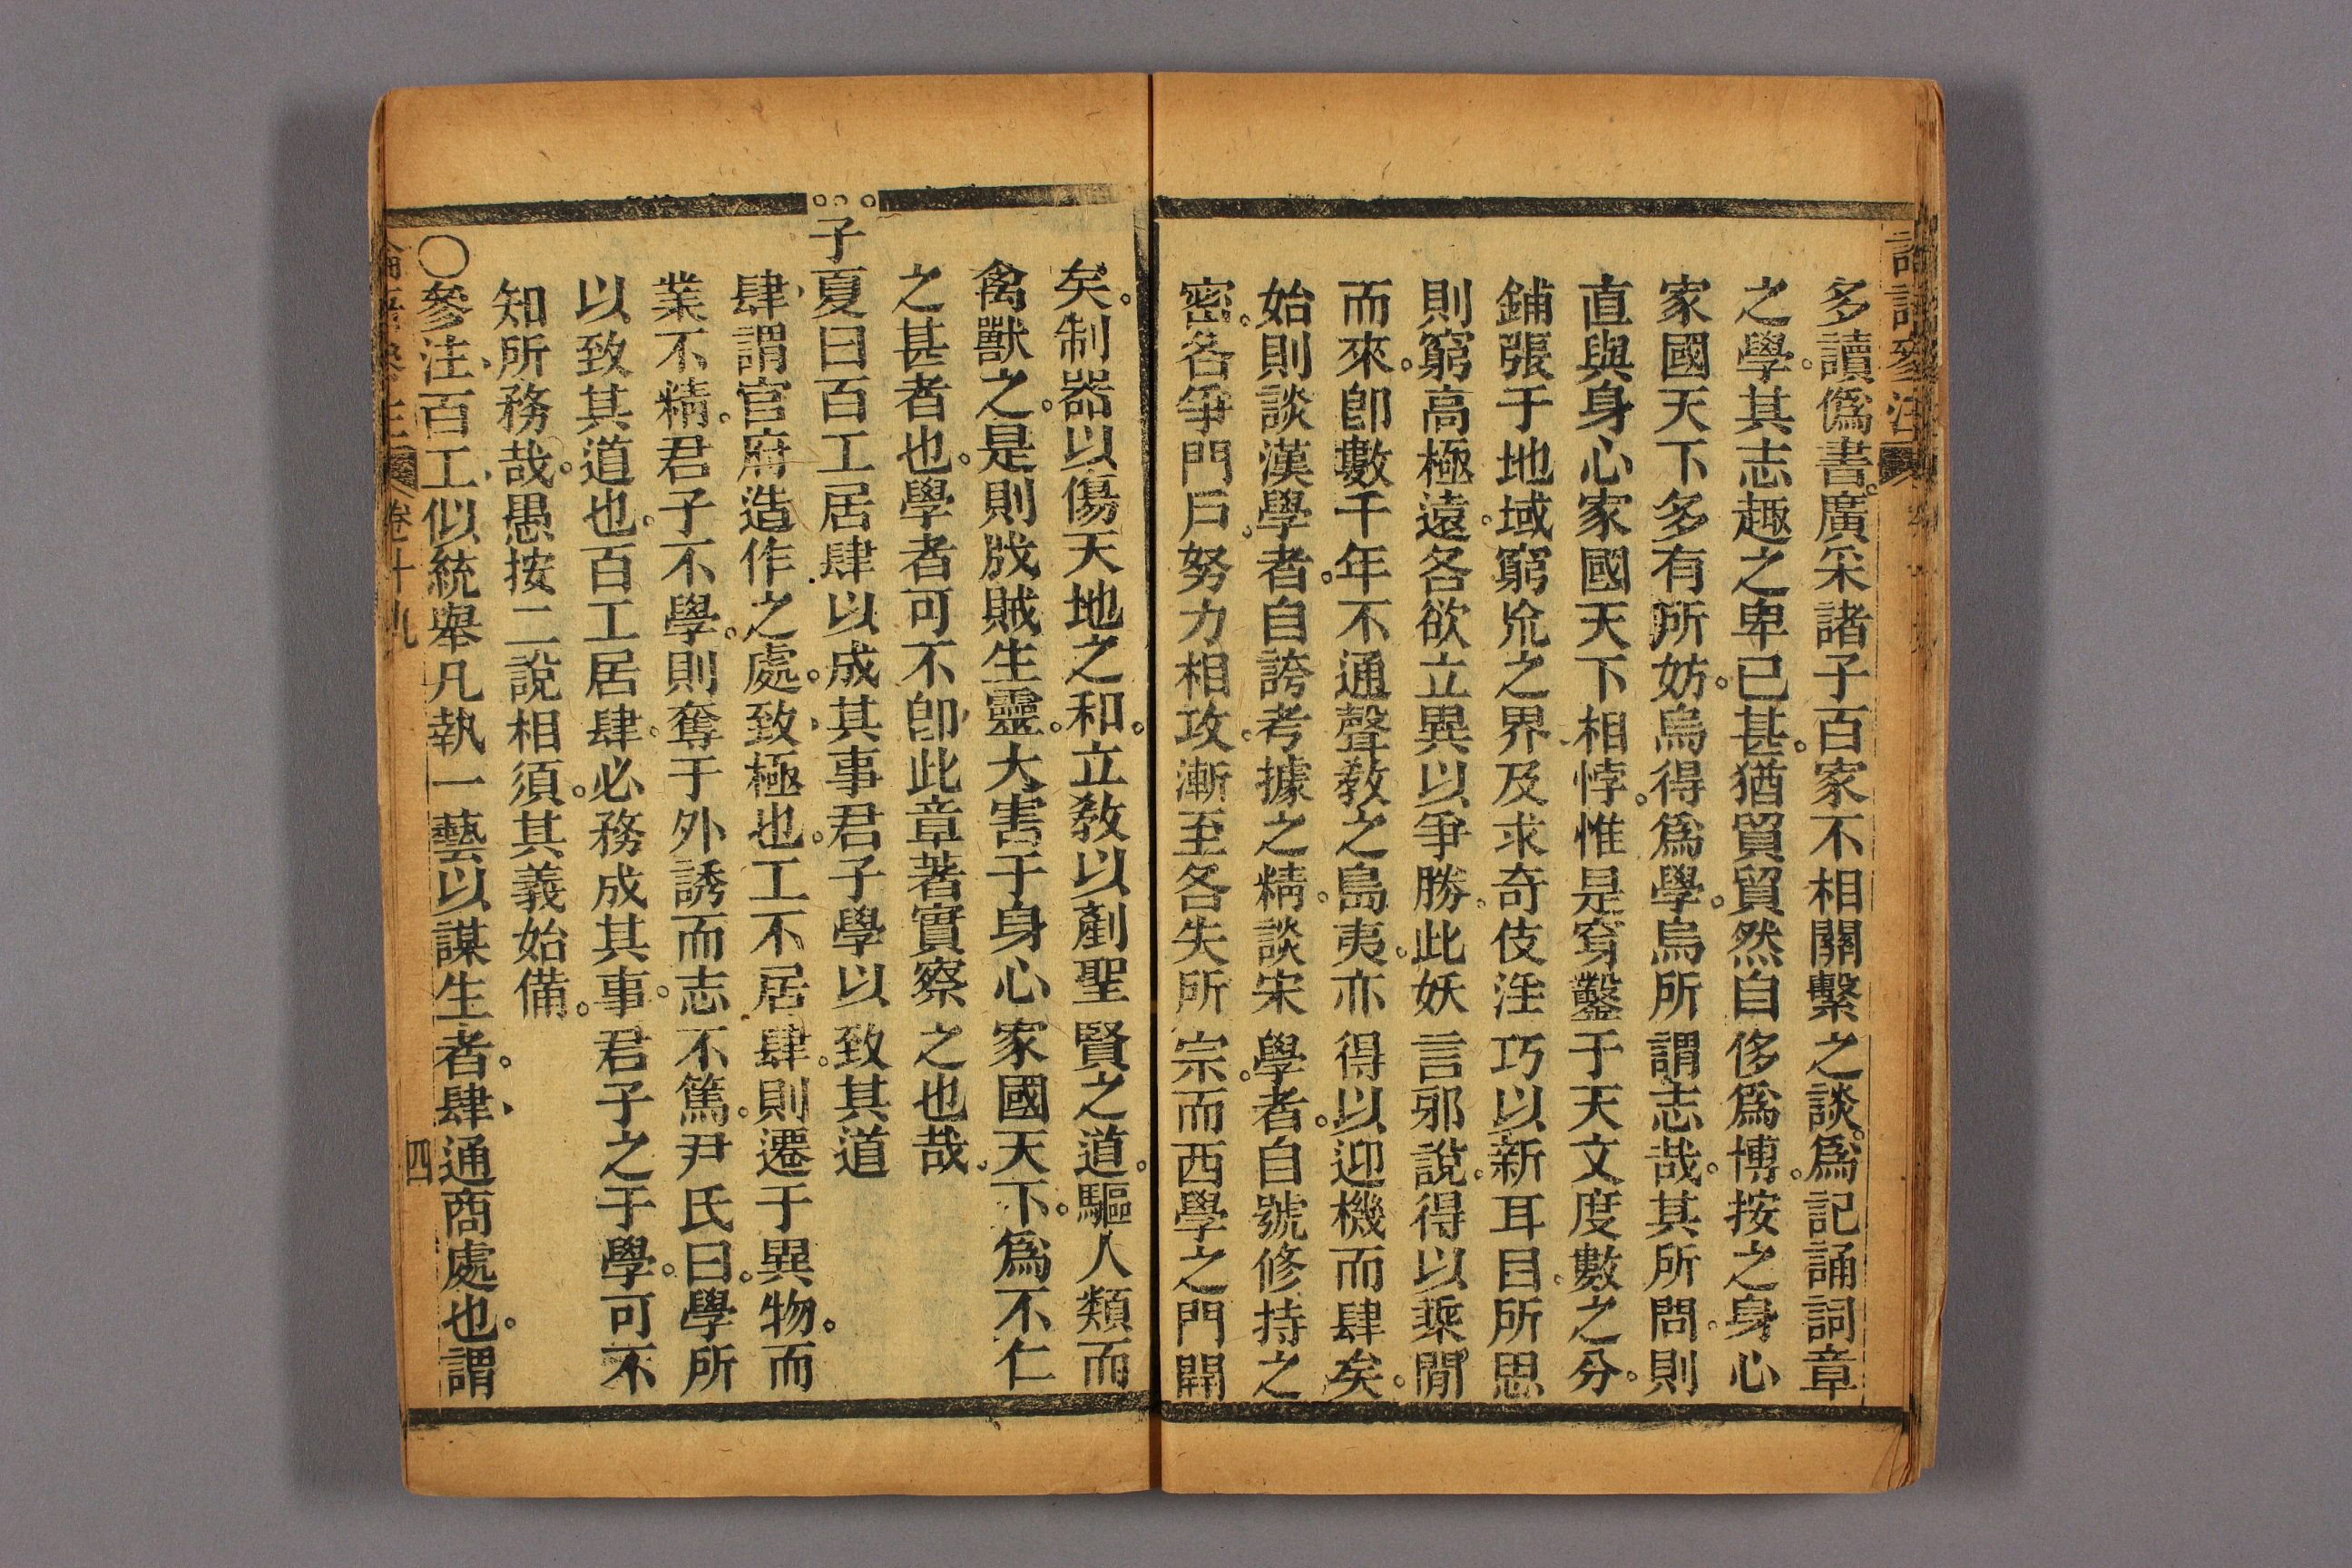 多讀僞書。廣采諸子百家不相關繫之談。爲記誦詞章
之學。其志趣之卑已甚。猶貿貿然自侈爲博。按之身心
家國天下多有所妨。烏得爲學。烏所謂志哉。其所問。則
直與身心家國天下相悖。惟是穿鑿于天文度數之分。
鋪張于地域窮荒之界及求奇伎淫巧以新耳目。所思
則窮高極遠。各欲立異以爭勝。此妖言邪說。得以乘閒
而來。卽數千年不通聲敎之島夷。亦得以迎機而肆矣。
始則談漢學者。自誇考據之精。談宋學者。自號修持之
密。各爭門戶。努力相攻。漸至各失所宗。而西學之門開
矣。制器以傷天地之和。立敎以剷聖賢之道。驅人類而
禽獸之。是則戕賊生靈。大害于身心家國天下。爲不仁
之甚者也。學者可不卽此章著實察之也哉。
子夏曰百工居肆以成其事君子學以致其道
肆、謂官府造作之處。致、極也。工不居肆。則遷于異物。而
業不精。君子不學。則奪于外誘而志不篤。尹氏曰。學所
以致其道也。百工居肆。必務成其事。君子之于學。可不
知所務哉。愚按二說相須。其義始備。
〇參注、百工、似統舉凡執一藝以謀生者。肆、通商處也。謂
卷十九
四